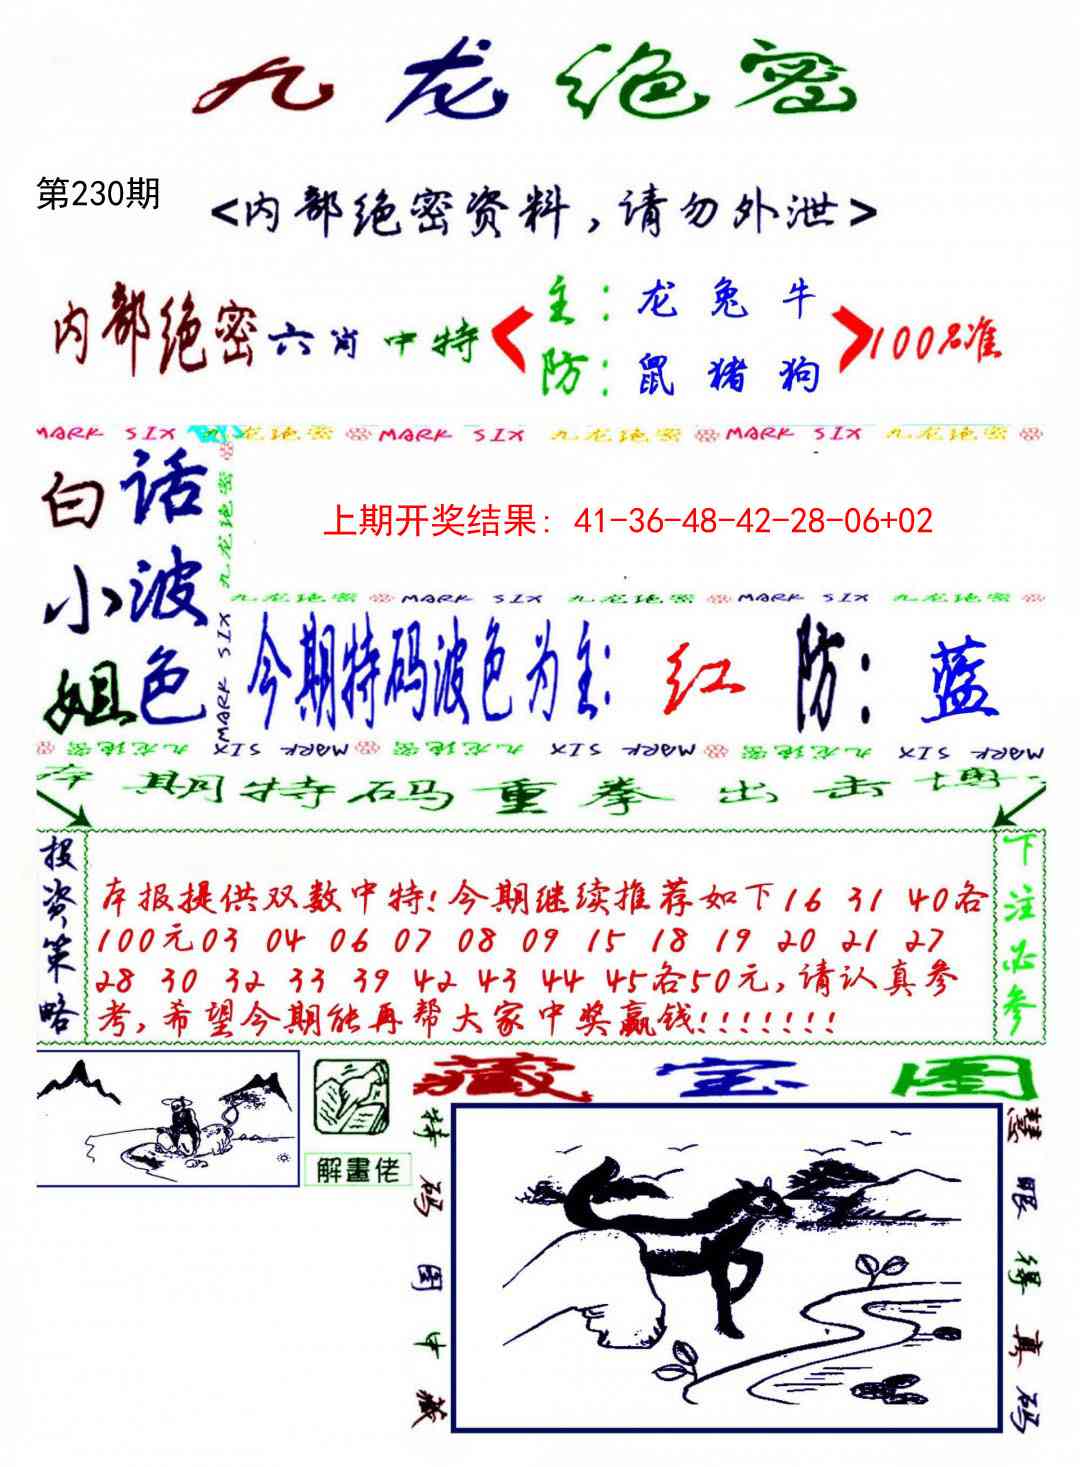 九龙绝密
第230期
<内部绝密资料，请勿外泄>
内部绝密六肖中特
主：龙 兔 牛
防：鼠 猪 狗
100%准
MARK SIX 九龙绝密 MARK SIX 九龙绝密 MARK SIX 九龙绝密
白话
小波
姐色
九龙绝密
MARK SIX
上期开奖结果：41-36-48-42-28-06+02
九龙绝密 MARK SIX 九龙绝密 MARK SIX 九龙绝密
今期特码波色为主：红 防：蓝
九龙绝密 MARK SIX 九龙绝密 MARK SIX 九龙绝密 MARK SIX
本期特码重拳出击博
投资策略
本报提供双数中特！今期继续推荐如下16 31 40各
100元03 04 06 07 08 09 15 18 19 20 21 27
28 30 32 33 39 42 43 44 45各50元，请认真参
考，希望今期能再帮大家中奖赢钱！！！！！！！
下注必参
藏宝图
解畫佬
特码图中藏
慧眼得真码